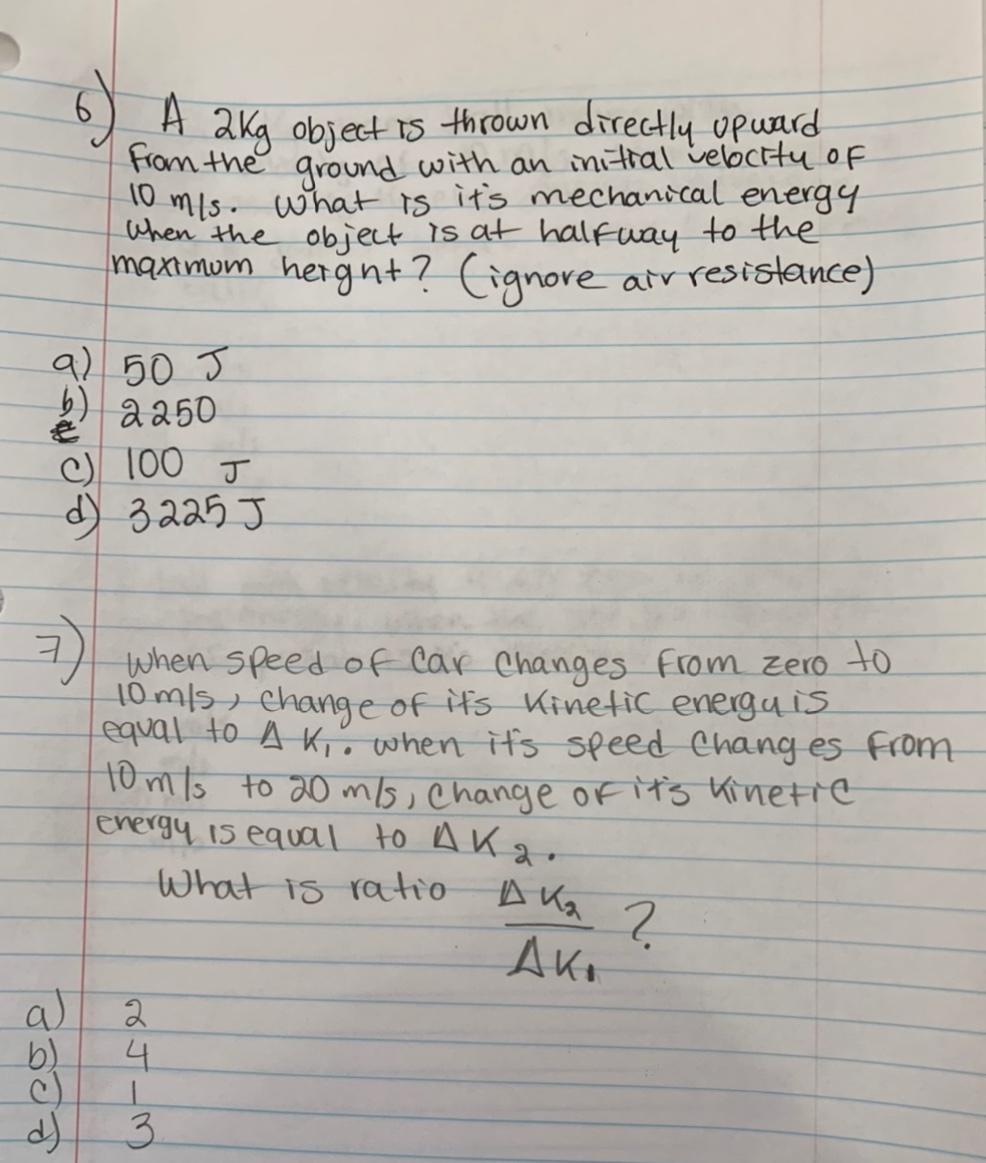 6) A 2Kg object is thrown directly upward
from the ground with an initial velocity of
10 m/s. What is it's mechanical energy
when the object is at halfway to the
maximum height? (ignore air resistance)
a) 50 J
b) 2250
c) 100 J
d) 3225 J
7) When speed of car changes from zero to
10 m/s, change of it's kinetic energy is
equal to Δ K₁. when it's speed changes from
10 m/s to 20 m/s, change of it's kinetic
energy is equal to Δ K₂.
What is ratio ΔK₂ / ΔK₁ ?
a) 2
b) 4
c) 1
d) 3